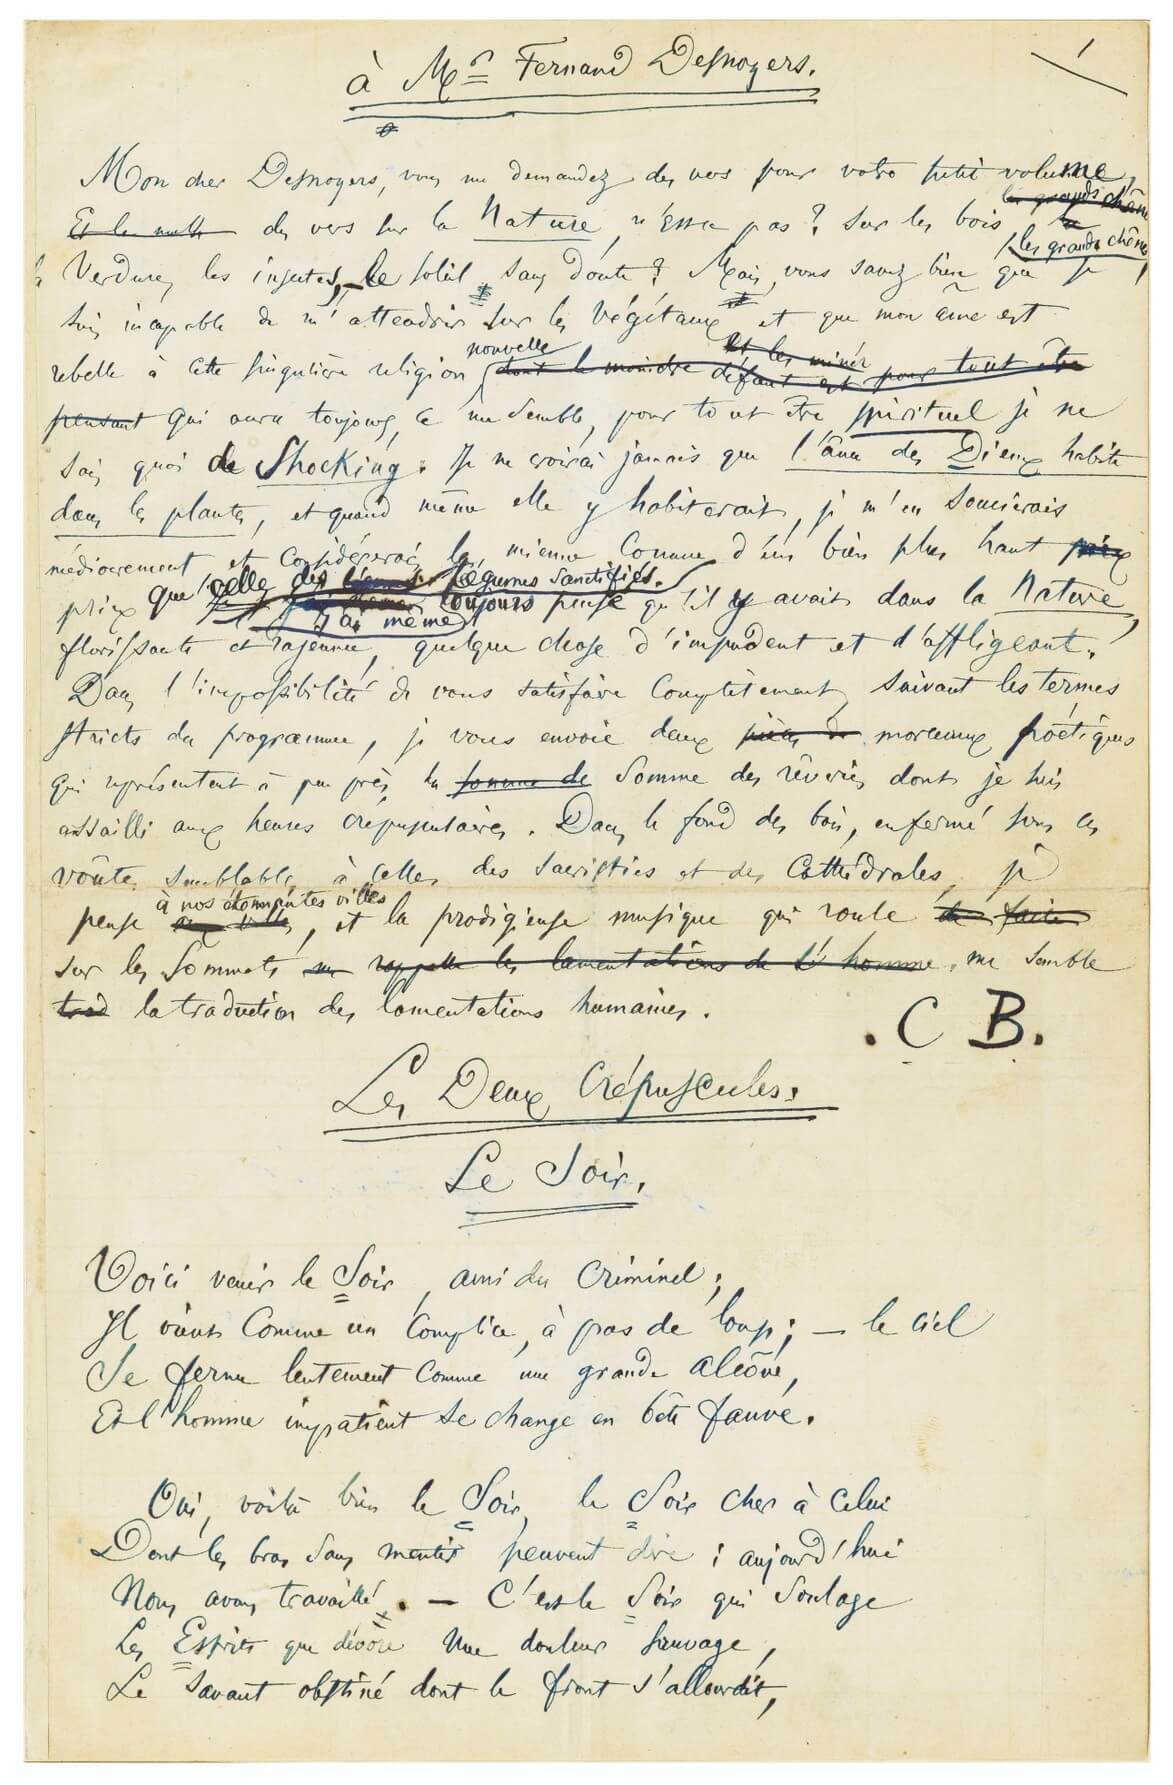 à Mr Fernand Desnoyers.
1
Mon cher Desnoyers, vous me demandez des vers pour votre petit volume,
les grands chênes
Et le des vers sur la Nature, n'est-ce pas? Sur les bois, la
les grands chênes,
la Verdure, les insectes, – le soleil, sans doute? Mais vous savez bien que je
suis incapable de m'attendrir sur les végétaux, et que mon âme est
nouvelle et les minér
rebelle à cette singulière religion dont le moindre défaut est pour tout être
pensant qui aura toujours, ce me semble, pour tout être spirituel je ne
sais quoi de Shocking. Je ne croirai jamais que l'âme des Dieux habite
dans les plantes, et quand même elle y habiterait, je m'en soucierais
médiocrement et considérerais la mienne comme d'un bien plus haut prix
prix que celle des légumes sanctifiés.
J'ai même toujours pensé qu'il y avait dans la Nature,
florissante et rajeunie, quelque chose d'impudent et d'affligeant.
Dans l'impossibilité de vous satisfaire complètement, suivant les termes
stricts du programme, je vous envoie deux pièces de morceaux poétiques
qui représentent à peu près, la somme de somme des rêveries dont je suis
assailli aux heures crépusculaires. Dans le fond des bois, enfermé sous ces
voûtes semblables à celles des sacristies et des Cathédrales, je
à nos étonnantes villes
pense aux villes, et la prodigieuse musique qui roule
sur les sommets me rappelle les lamentations de l'homme, me semble
trad la traduction des lamentations humaines.
. C B.
Les Deux Crépuscules.
Le Soir.
Voici venir le Soir, ami du Criminel;
Il vient comme un complice, à pas de loup; – le ciel
Se ferme lentement comme une grande alcôve,
Et l'homme impatient se change en bête fauve.
Oui, voilà bien le Soir, le Soir cher à celui
Dont les bras sans mentir peuvent dire : aujourd'hui
Nous avons travaillé. – C'est le Soir qui soulage
Les Esprits que dévore une douleur sauvage,
Le savant obstiné dont le front s'allourdit,